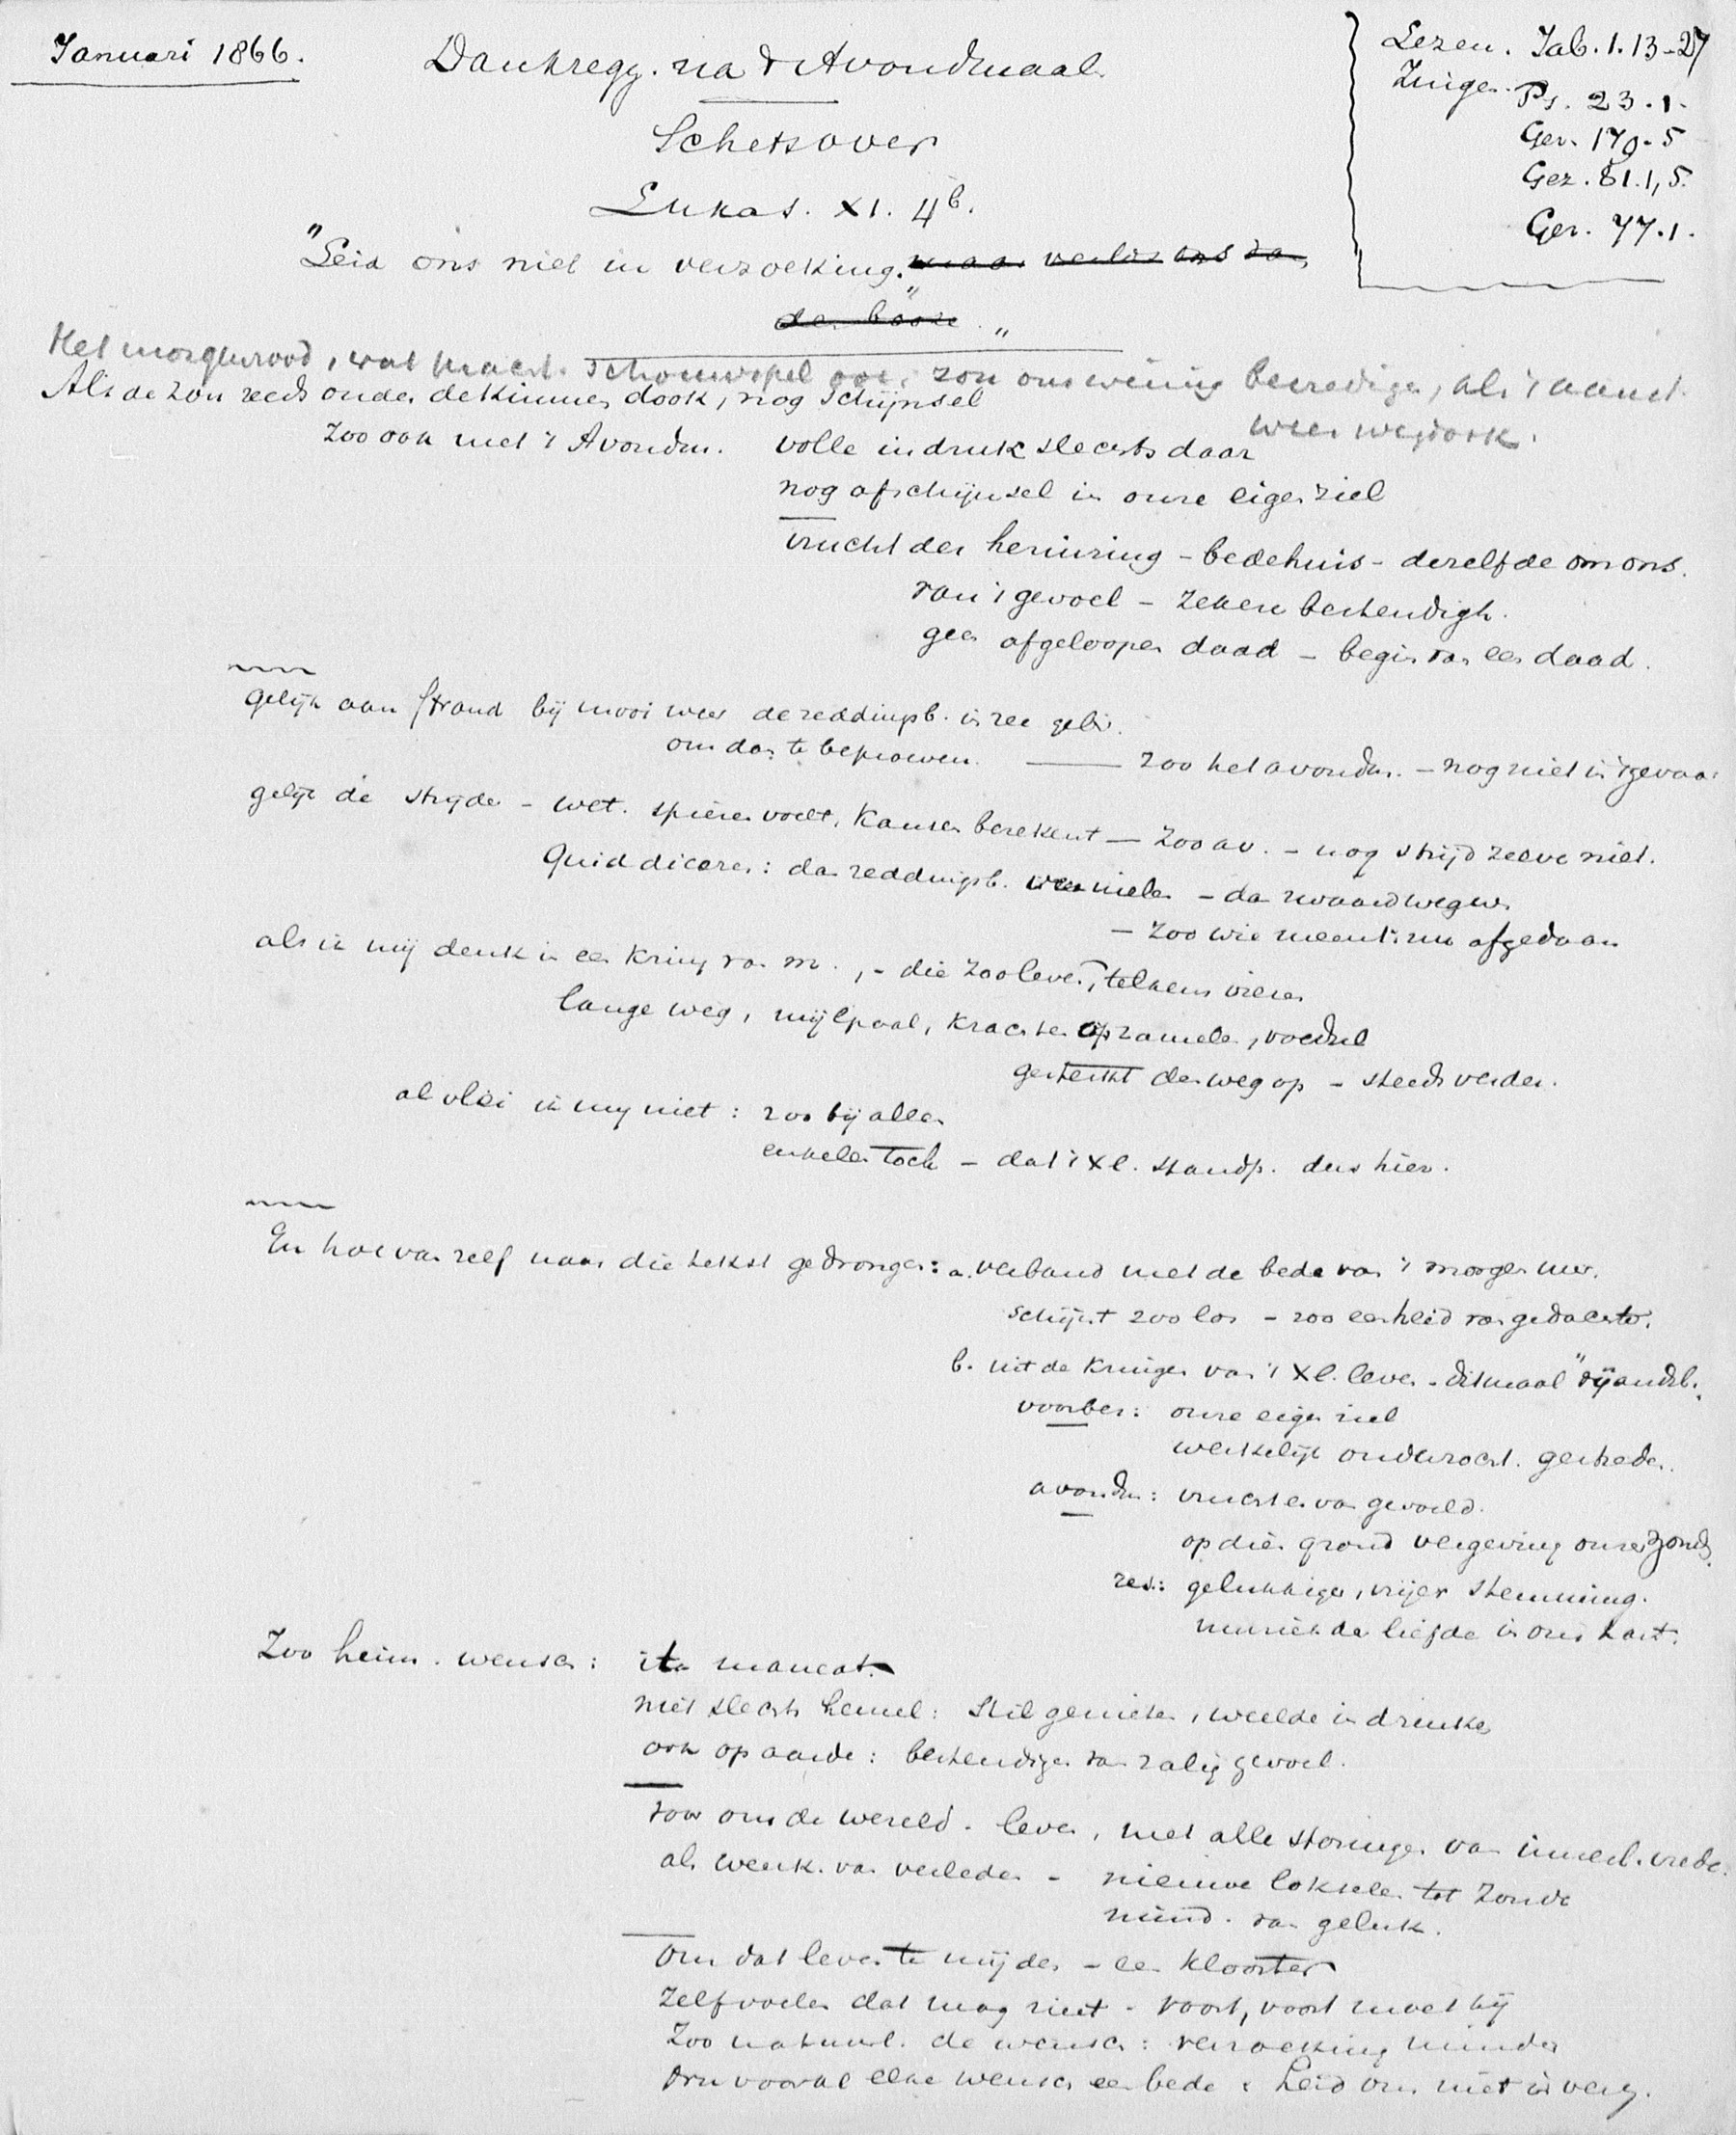 Januari 1866.
Dankregg. na 't Avondmaal.
Schets over
Lukas. XI. 4b.
"Leid ons niet in verzoeking." maar verlos ons van
den booze."
Lezen. Jab. 1. 13-27
Zinge. Ps. 23.1.
Gez. 170.5
Gez. 81.1,5.
Gez. 77.1.
Het morgenrood, wat pracht. schouwspel ook, zou ons weinig bevredigen, als 't aanst.
weer wegdook.
Als de zon reeds onder de kimmen dook, nog schijnsel
Zoo ook met 't Avondm. volle indruk slechts daar
nog afschijnsel in onze eigen ziel
vrucht der herinring - bedehuis - dezelfde om ons.
van 't gevoel - zeker bestendigh.
geen afgeloopen daad - begin van een daad.
gelijk aan strand bij mooi weer de reddingsb. in zee gebr.
om dan te beproeven. — Zoo het avondm. - nog niet in 't gevaar
gelijk de strijder - wet. spieren voelt, Kansen berekent — Zoo av. - nog strijd zelve niet.
Quid diceres: dan reddingsb. - dan zwaard wegw.
- Zoo wie meent: nu afgedaan
als ik mij denk in een Kring van m., - die zoo leven, telkens vieren
lange weg, mijlpaal, Krachten opzamelen, voedsel
gesterkt den weg op - steeds verder.
al vlei ik mij niet: zoo bij allen
enkelen toch - dat 't Xl. standp. dus hier.
En hoe van zelf naar die tekst gedrongen: a. verband met de bede van 't morgen uur.
schijnt zoo los - zoo eenheid van gedachte.
b. uit de Kringen van 't Xl. leven - ditmaal "vijandsl.
voorber: onze eigen ziel
werkelijk onderzocht. gestreden.
avondm: vruchten van gevoeld.
op dien grond vergeving onzer zond.
res.: gelukkige, vrijer stemming.
muziek der liefde in ons hart.
Zoo heim. wensch: ita maneat.
niet slechts hemel: Stil genieten, weelde indrinken
ook op aarde: bestendigen van zalig gevoel.
voor ons de wereld. leven, met alle storingen van innerl. vrede.
als werk. van verleden - nieuwe lokselen tot Zonde
mind. van geluk.
Om dat leven te mijden - een Klooster
Zelf voelen dat mag niet - voort, voort moet hij
Zoo natuurl. de wensch: verzoeking minder
Dan vooral elke wensch een bede: Leid ons niet in verz.